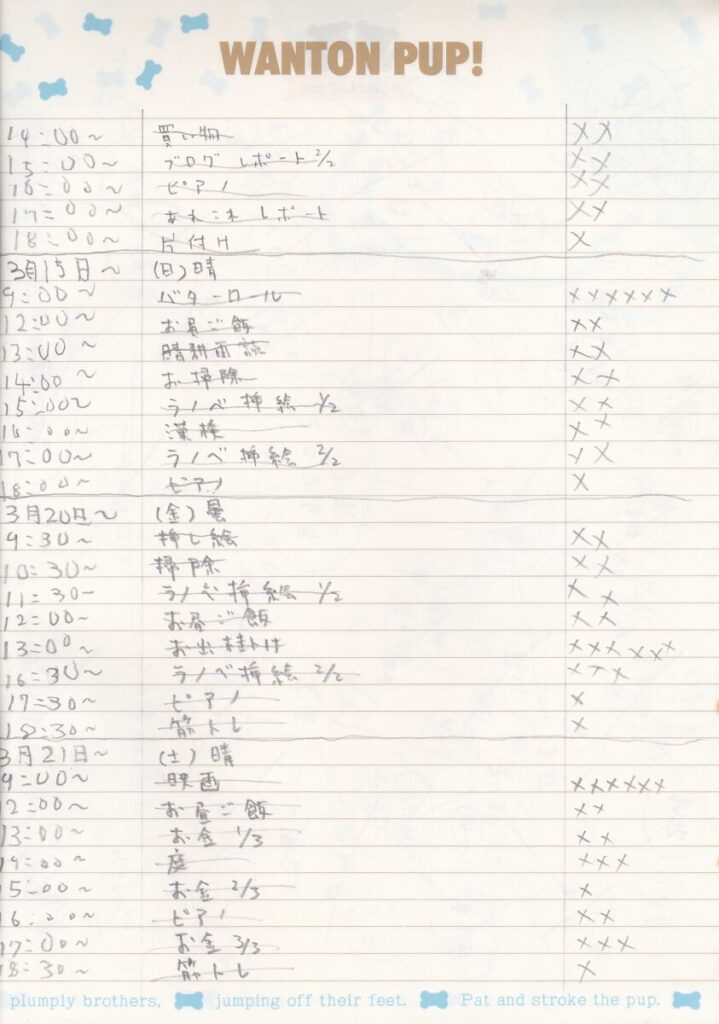 WANTON PUP!
14:00~ 買い物 ××
15:00~ ブログレポート 2/2 ××
16:00~ ピアノ ××
17:00~ あれこれレポート ××
18:00~ 片付け ×
3月15日~ (日)晴
9:00~ バターロール ××××××
12:00~ お昼ご飯 ××
13:00~ 晴耕雨読 ××
14:00~ お掃除 ××
15:00~ ラノベ挿絵 1/2 ××
16:00~ 漢検 ××
17:00~ ラノベ挿絵 2/2 ××
18:00~ ピアノ ×
3月20日~ (金)風
9:30~ 挿し絵 ××
10:30~ 掃除 ××
11:30~ ラノベ挿絵 1/2 ××
12:00~ お昼ご飯 ××
13:00~ お出掛け ××××××
16:30~ ラノベ挿絵 2/2 ×××
17:30~ ピアノ ×
18:30~ 筋トレ ×
3月21日~ (土)晴
9:00~ 映画 ××××××
12:00~ お昼ご飯 ××
13:00~ お金 1/3 ××
14:00~ 庭 ×××
15:00~ お金 2/3 ×
16:00~ ピアノ ××
17:00~ お金 3/3 ×××
18:30~ 筋トレ ×
plumply brothers, jumping off their feet. Pat and stroke the pup.